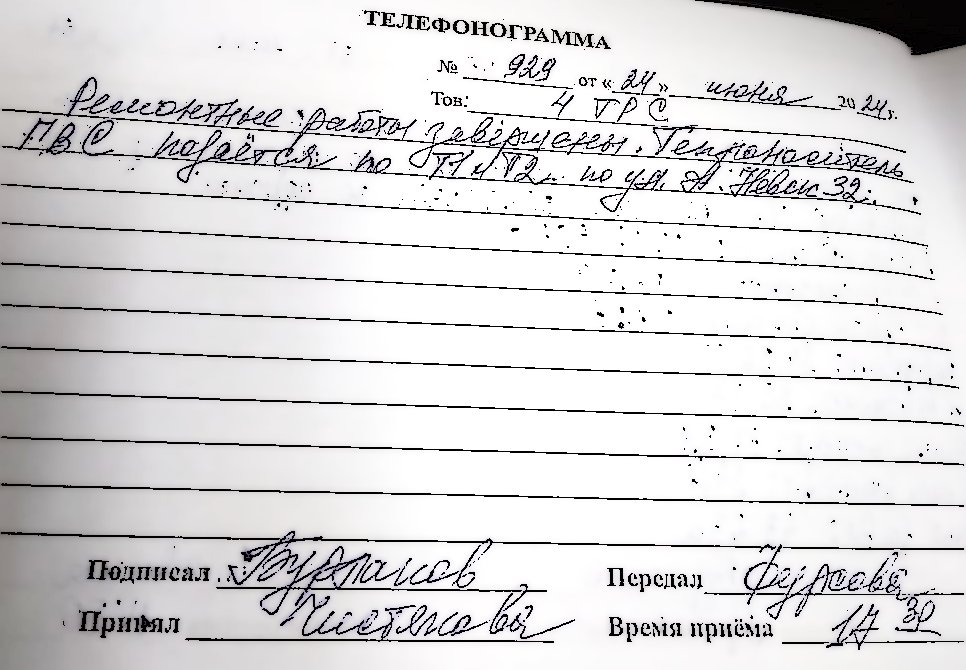 ТЕЛЕФОНОГРАММА
№ 929 от «24» июня 2024г.
Тов: 4 ТРС
Ремонтные работы завершены. Теплоноситель
ГВС подаётся по Т1 и Т2. по ул. А. Невск 32.
Подписал Бурлаков Передал Фурсова
Принял Чистякова Время приёма 17 30